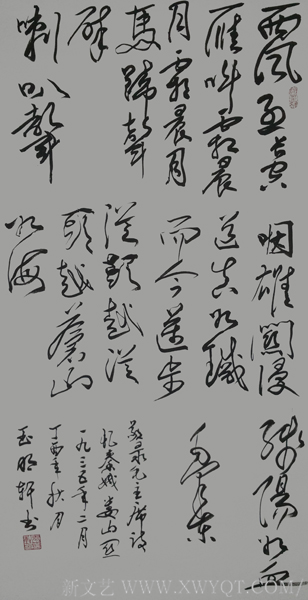 西風烈長空
雁叫霜晨
月霜晨月
馬蹄聲
碎
喇叭聲
咽雄關漫
道真如鐵
而今邁步
從頭越從
頭越蒼山
如海
殘陽如血
毛泽东
敬录毛主席詩
忆秦娥娄山关
一九三五年二月
丁酉年秋月
玉明轩书
新文艺 WWW.XWYQT.COM/